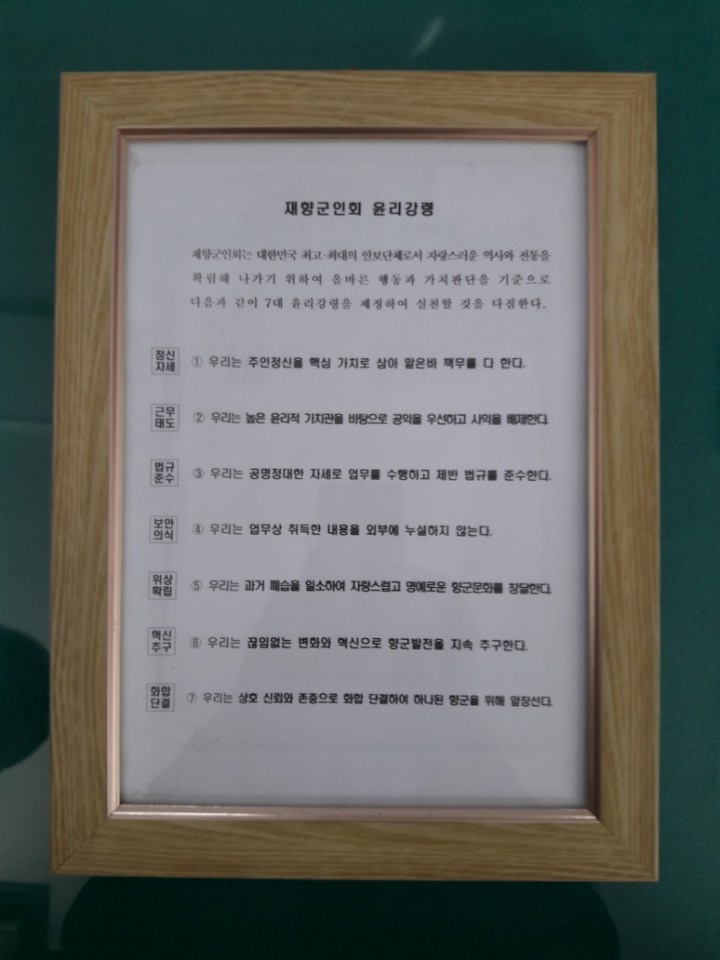 재향군인회 윤리강령
재향군인회는 대한민국 최고·최대의 안보단체로서 자랑스러운 역사와 전통을
확립해 나가기 위하여 올바른 행동과 가치판단을 기준으로
다음과 같이 7대 윤리강령을 제정하여 실천할 것을 다짐한다.
정신
자세
① 우리는 주인정신을 핵심 가치로 삼아 맡은바 책무를 다 한다.
근무
태도
② 우리는 높은 윤리적 가치관을 바탕으로 공익을 우선하고 사익을 배제한다.
법규
준수
③ 우리는 공명정대한 자세로 업무를 수행하고 제반 법규를 준수한다.
보안
의식
④ 우리는 업무상 취득한 내용을 외부에 누설하지 않는다.
위상
확립
⑤ 우리는 과거 폐습을 일소하여 자랑스럽고 명예로운 향군문화를 창달한다.
혁신
추구
⑥ 우리는 끊임없는 변화와 혁신으로 향군발전을 지속 추구한다.
화합
단결
⑦ 우리는 상호 신뢰와 존중으로 화합 단결하여 하나된 향군을 위해 앞장선다.